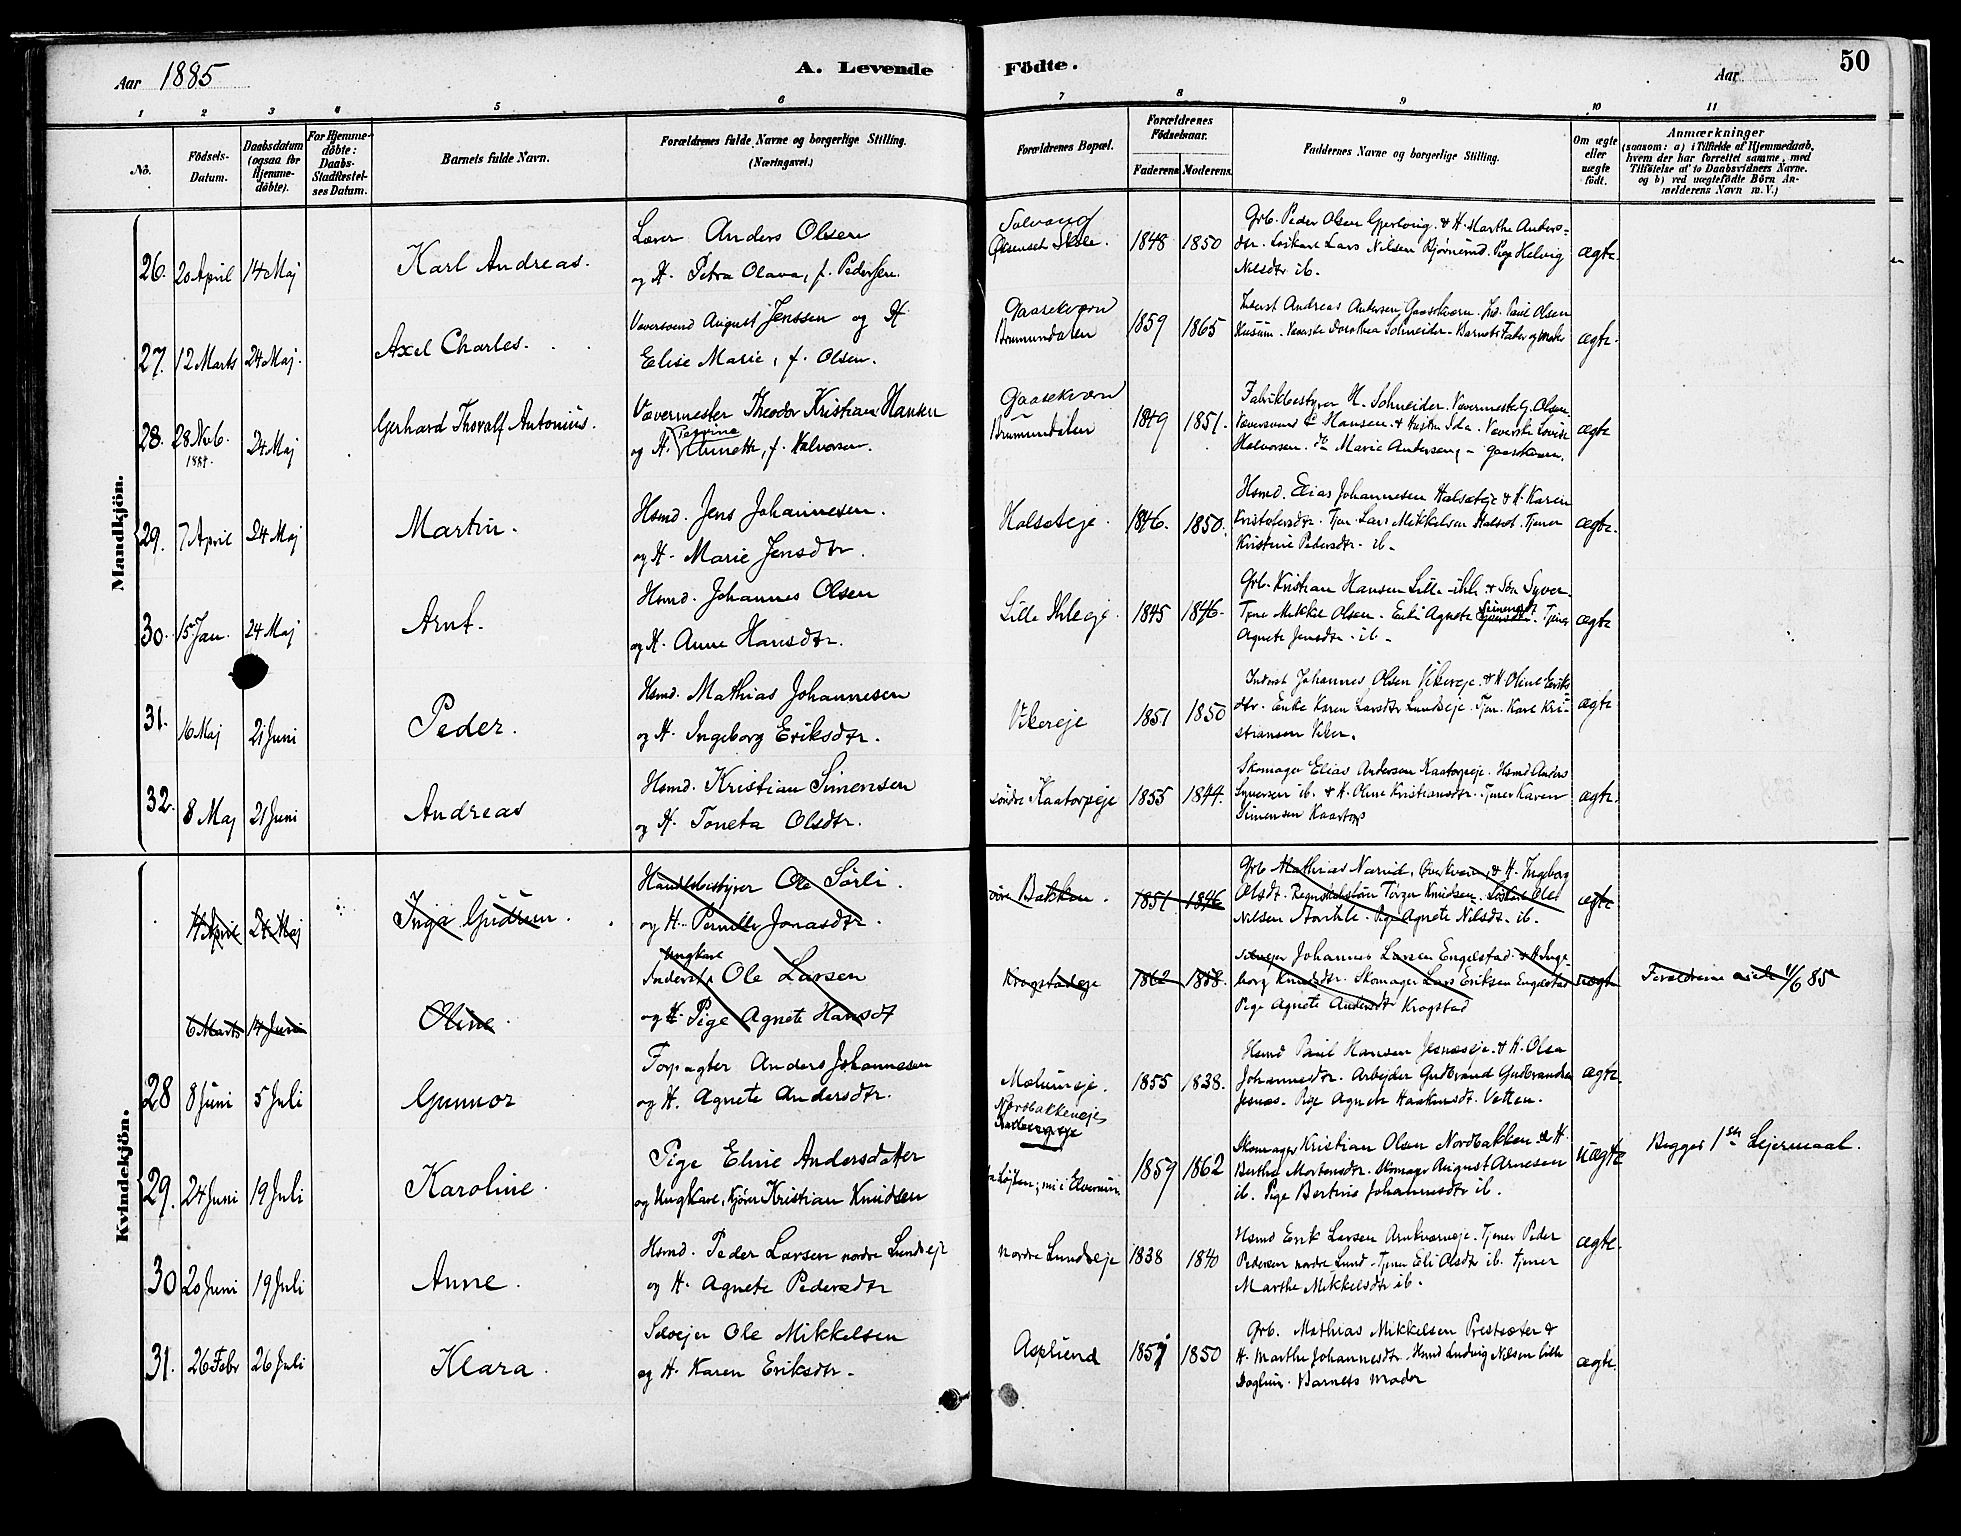 Aar 1885
A. Levende Födte.
Aar
50
1 2 3 4 5 6 7 8 9 10 11
No.
Födsels-Datum.
Daabsdatum (ogsaa for Hjemme-döbte).
For Hjemme-döbte: Daabs-Stadfæstel-ses Datum.
Barnets fulde Navn.
Forældrenes fulde Navne og borgerlige Stilling. (Næringsvei.)
Forældrenes Bopæl.
Forældrenes Födselsaar.
Faderens Moderens
Faddernes Navne og borgerlige Stilling.
Om ægte eller uægte födt.
Anmærkninger
(saasom: a) i Tilfælde af Hjemmedaab,
hvem der har forrettet samme, med
Tilföielse af to Daabsvidners Navne.
og b) ved uægtefödte Börn An-
melderens Navn m. V.)
Mandkjön.
26. 20 April 14 Maj Karl Andreas.
Lærer Anders Olsen
og H. Petra Olava, f. Pedersen.
Solvang
Skole. 1848 1850
Grb. Peder Olsen Gjerlovig. & H. Marthe Anders-
dtr. Løskar Lars Nilsen Bjørnerud. Pige Helvig
Nilsdtr ib.
ægte
27. 12 Marts 24 Maj. Axel Charles.
Væversvend August Jenssen og H
Elise Marie, f. Olsen.
Gaasekværn
Brumundalen 1859 1865
Inderst Andreas Andersen Gaasekværn. Paul Olsen
Husum. Væverske Dorothea Schneider. Barnets Fader og Moder
ægte.
28. 28 Nvb. 1884. 24 Maj Gerhard Thoralf Antonius.
Vævermester Theodor Kristian Hansen
og H. Annette, f. Halvorsen.
Gaasekværn
Brumundalen 1849 1851.
Fabrikbestyrer H. Schneider. Vævermester G. Olsen.
Væversvend C Hansen & Hustru Ida. Væverske Lovise
Halvorsen. do Marie Andersen, - Gaasekværn.
ægte
29. 7 April 24 Maj Martin.
Hsmd. Jens Johannesen.
og H. Marie Jensdtr.
Halseteje. 1846. 1850.
Hsmd. Elias Johannesen Halseteje & H. Karen
Kristofersdtr. Tjen. Lars Mikkelsen Halset. Tjener
Kristine Pedersdtr. ib.
ægte.
30. 15 Jan. 24 Maj Arnt.
Hsmd. Johannes Olsen
og H. Anne Hansdtr.
Lille Ihleeje. 1845 1846.
Grb. Kristian Hansen Lille-ihle. & Søn Syver.
Tjene Mikkel Olsen. Enke Agnete Simensdt. Tjener
Agnete Jensdtr. ib.
ægte
31. 16 Maj 21 Juni Peder.
Hsmd. Mathias Johannesen
og H. Ingeborg Eriksdtr.
Vikereje 1851 1850
Inderst Johannes Olsen Vikereje. & H. Oline Eriks-
dtr. Enke Karen Larsdtr Lundseje. Tjen. Karl Kri-
stiansen Viker.
ægte
32. 8 Maj 21 Juni Andreas
Hsmd. Kristian Simensen
og H. Toneta Olsdtr.
söndre Kaatorpeje 1855 1844.
Skomager Elias Andersen Kaatorpeje. Hsmd Anders
Syversen ib. & H. Oline Kristiansdtr. Tjener Karen
Simensen Kaatorp
ægte.
Kvindekjön.
14 April 24 Maj Inga Gudrun.
Handelsbestyrer Ole Sørli.
og H. Pernille Jonasdtr.
Bakken. 1851 1846
Grb Mathias Narud, Overkværn, & H. Ingeborg
Olsdt. Torger Knudsen. Løskar Ole
Nilsen. Pige Agnete Nilsdt. ib.
ægte
6 Marts 14 Juni Oline.
Ungkarl
Inderst Ole Larsen
og H. Pige Agnete Hansdt
Krogstadeje 1862
Selvejer Johannes Larsen Engelstad & H Inge-
borg Knudsdtr. Skomager Lars Eriksen Engelstad
Pige Agnete Andersdtr Krogstad
uægte
Foreldrene viede 4/6 85
28 8 Juni 5 Juli Gunnor
Forpagter Anders Johannesen
og H. Agnete Andersdtr.
Molunseje. 1855 1838.
Hsmd Paul Hansen Jesneseje. & H. Olea
Johannesdtr. Arbejder Gudbrand Gudbrandsen
Jesnes. Pige Agnete Haakensdt. Vetten.
ægte.
29. 24 Juni 19 Juli Karoline.
Pige Eline Andersdatter
og Ungkarl, Kjører Kristian Knudsen
Nordbakkeneje
Løjten; nu i Elverum. 1859 1862
Skomager Kristian Olsen Nordbakken. & H.
Berthe Mortensdtr. Skomager August Arnesen
ib. Pige Bertine Johannesdtr ib.
uægte
Begges 1ste Lejermaal.
30 20 Juni 19 Juli Anne.
Hsmd. Peder Larsen nordre Lundseje
og H. Agnete Pedersdtr
nordre Lundseje 1838 1840
Hsmd Erik Larsen. Tjener Peder
Pedersen nordre Lund. Tjener Eli Olsdtr ib. Tjener
Marthe Mikkelsdtr ib.
ægte.
31. 26 Febr 26 Juli Klara.
Selvejer Ole Mikkelsen
og H. Karen Eriksdtr.
Asplund 1850
Grb. Mathias Mikkelsen Prestsæter &
H. Marthe Johannesdtr. Hsmd Ludvig Nilsen lille
Barnets Moder
ægte.